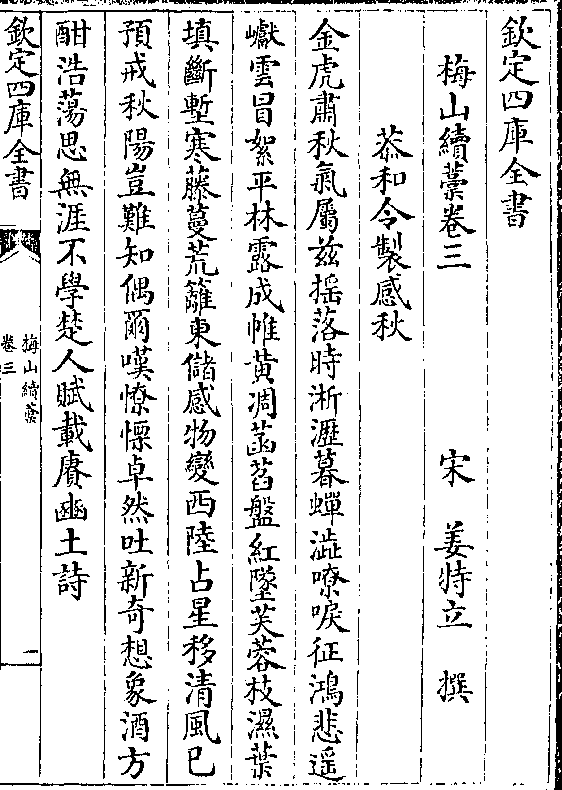 欽定四庫全書
梅山續藁卷三
宋 姜特立 撰
恭和令製感秋
金虎肅秋氣屬兹揺落時淅瀝暮蟬澁嘹唳征鴻悲遥
巘雲冒絮平林露成帷黄凋菡萏盤紅墜芙蓉枝濕葉
填斷塹寒藤蔓荒籬東儲感物變西陸占星移清風已
預戒秋陽豈難知偶爾嘆憭慄卓然吐新奇想象酒方
酣浩蕩思無涯不學楚人賦載賡豳土詩
欽定四庫全書
梅山續藁
卷三
一